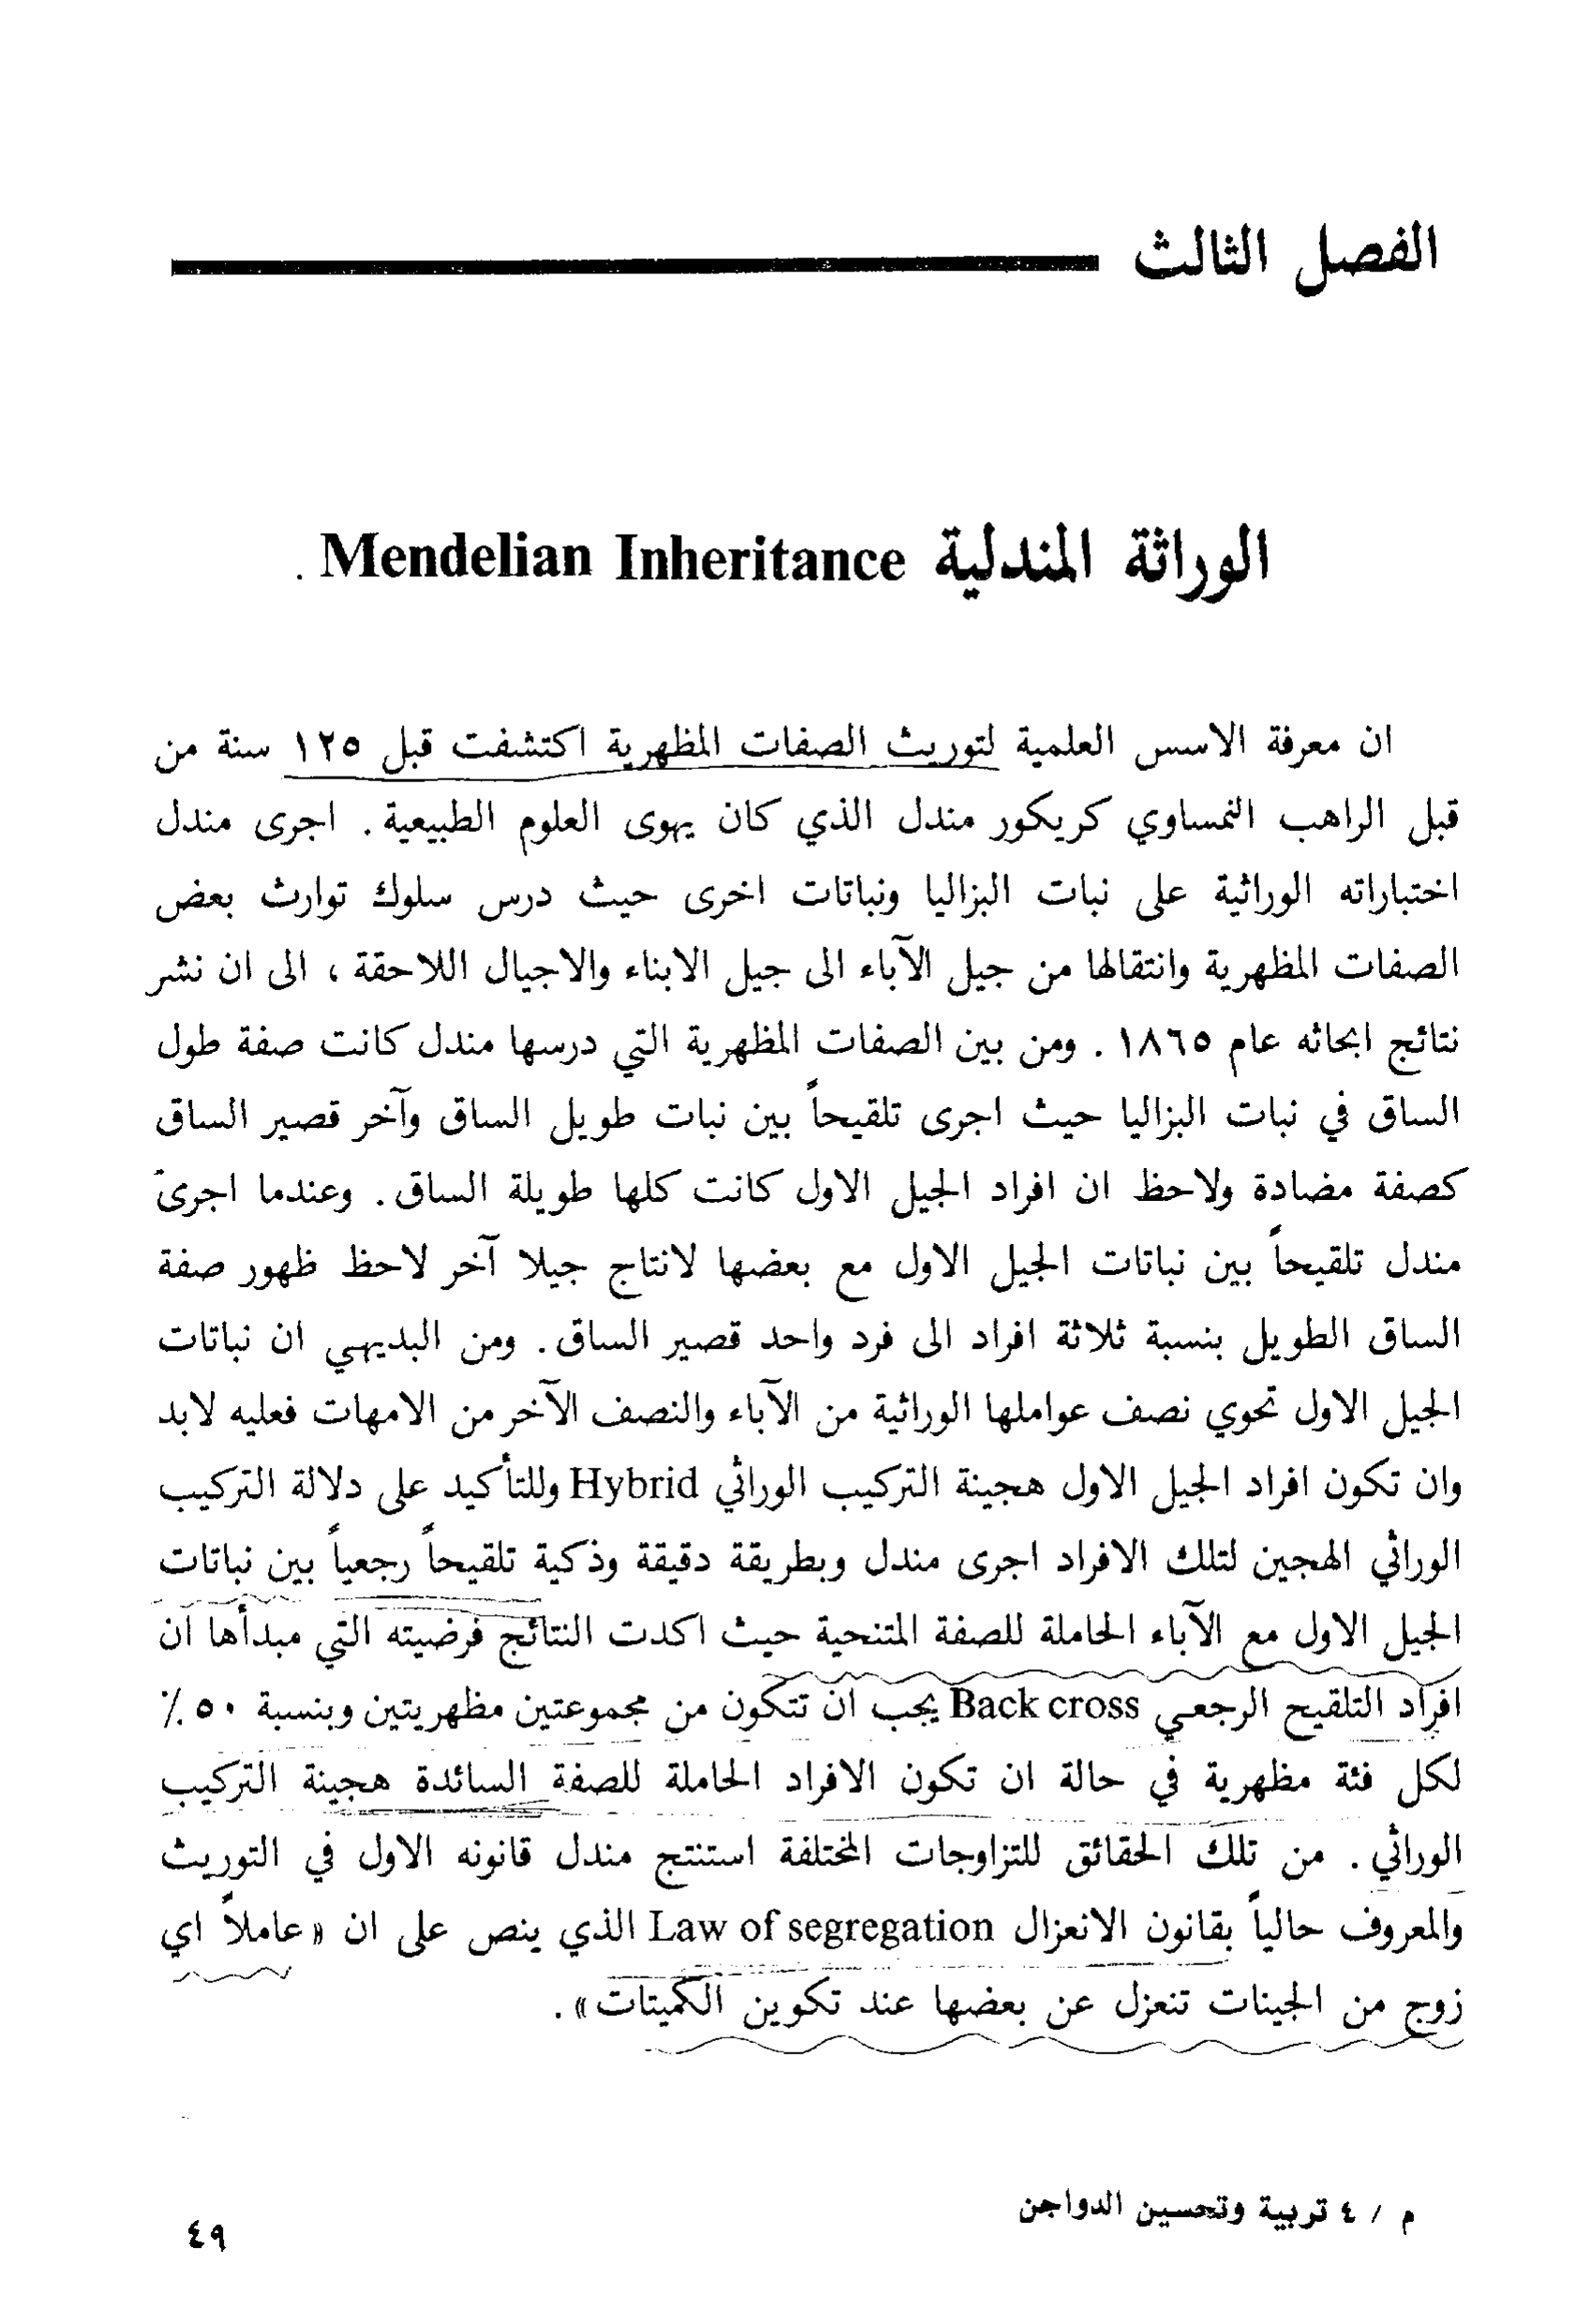 الفصل الثالث
الوراثة المندلية Mendelian Inheritance .
ان معرفة الاسس العلمية لتوريث الصفات المظهرية اكتشفت قبل ١٢٥ سنة من
قبل الراهب النمساوي كريكور مندل الذي كان يهوى العلوم الطبيعية . اجرى مندل
اختباراته الوراثية على نبات البزاليا ونباتات اخرى حيث درس سلوك توارث بعض
الصفات المظهرية وانتقالها من جيل الآباء الى جيل الابناء والاجيال اللاحقة ، الى ان نشر
نتائج ابحاثه عام ١٨٦٥ . ومن بين الصفات المظهرية التي درسها مندل كانت صفة طول
الساق في نبات البزاليا حيث اجرى تلقيحاً بين نبات طويل الساق وآخر قصير الساق
كصفة مضادة ولاحظ ان افراد الجيل الاول كانت كلها طويلة الساق . وعندما اجرى
مندل تلقيحاً بين نباتات الجيل الاول مع بعضها لانتاج جيلا آخر لاحظ ظهور صفة
الساق الطويل بنسبة ثلاثة افراد الى فرد واحد قصير الساق . ومن البديهي ان نباتات
الجيل الاول تحوي نصف عواملها الوراثية من الآباء والنصف الآخر من الامهات فعليه لابد
وان تكون افراد الجيل الاول هجينة التركيب الوراثي Hybrid وللتأكيد على دلالة التركيب
الوراثي الهجين لتلك الافراد اجرى مندل وبطريقة دقيقة وذكية تلقيحاً رجعياً بين نباتات
الجيل الاول مع الآباء الحاملة للصفة المتنحية حيث اكدت النتائج فرضيته التي مبدأها ان
افراد التلقيح الرجعي Back cross يجب ان تتكون من مجموعتين مظهريتين وبنسبة ٥٠ ٪
لكل فئة مظهرية في حالة ان تكون الافراد الحاملة للصفة السائدة هجينة التركيب
الوراثي . من تلك الحقائق للتزاوجات المختلفة استنتج مندل قانونه الاول في التوريث
والمعروف حالياً بقانون الانعزال Law of segregation الذي ينص على ان «عاملاً اي
زوج من الجينات تنعزل عن بعضها عند تكوين الكميتات» .
م / ٤ تربية وتحسين الدواجن
٤٩